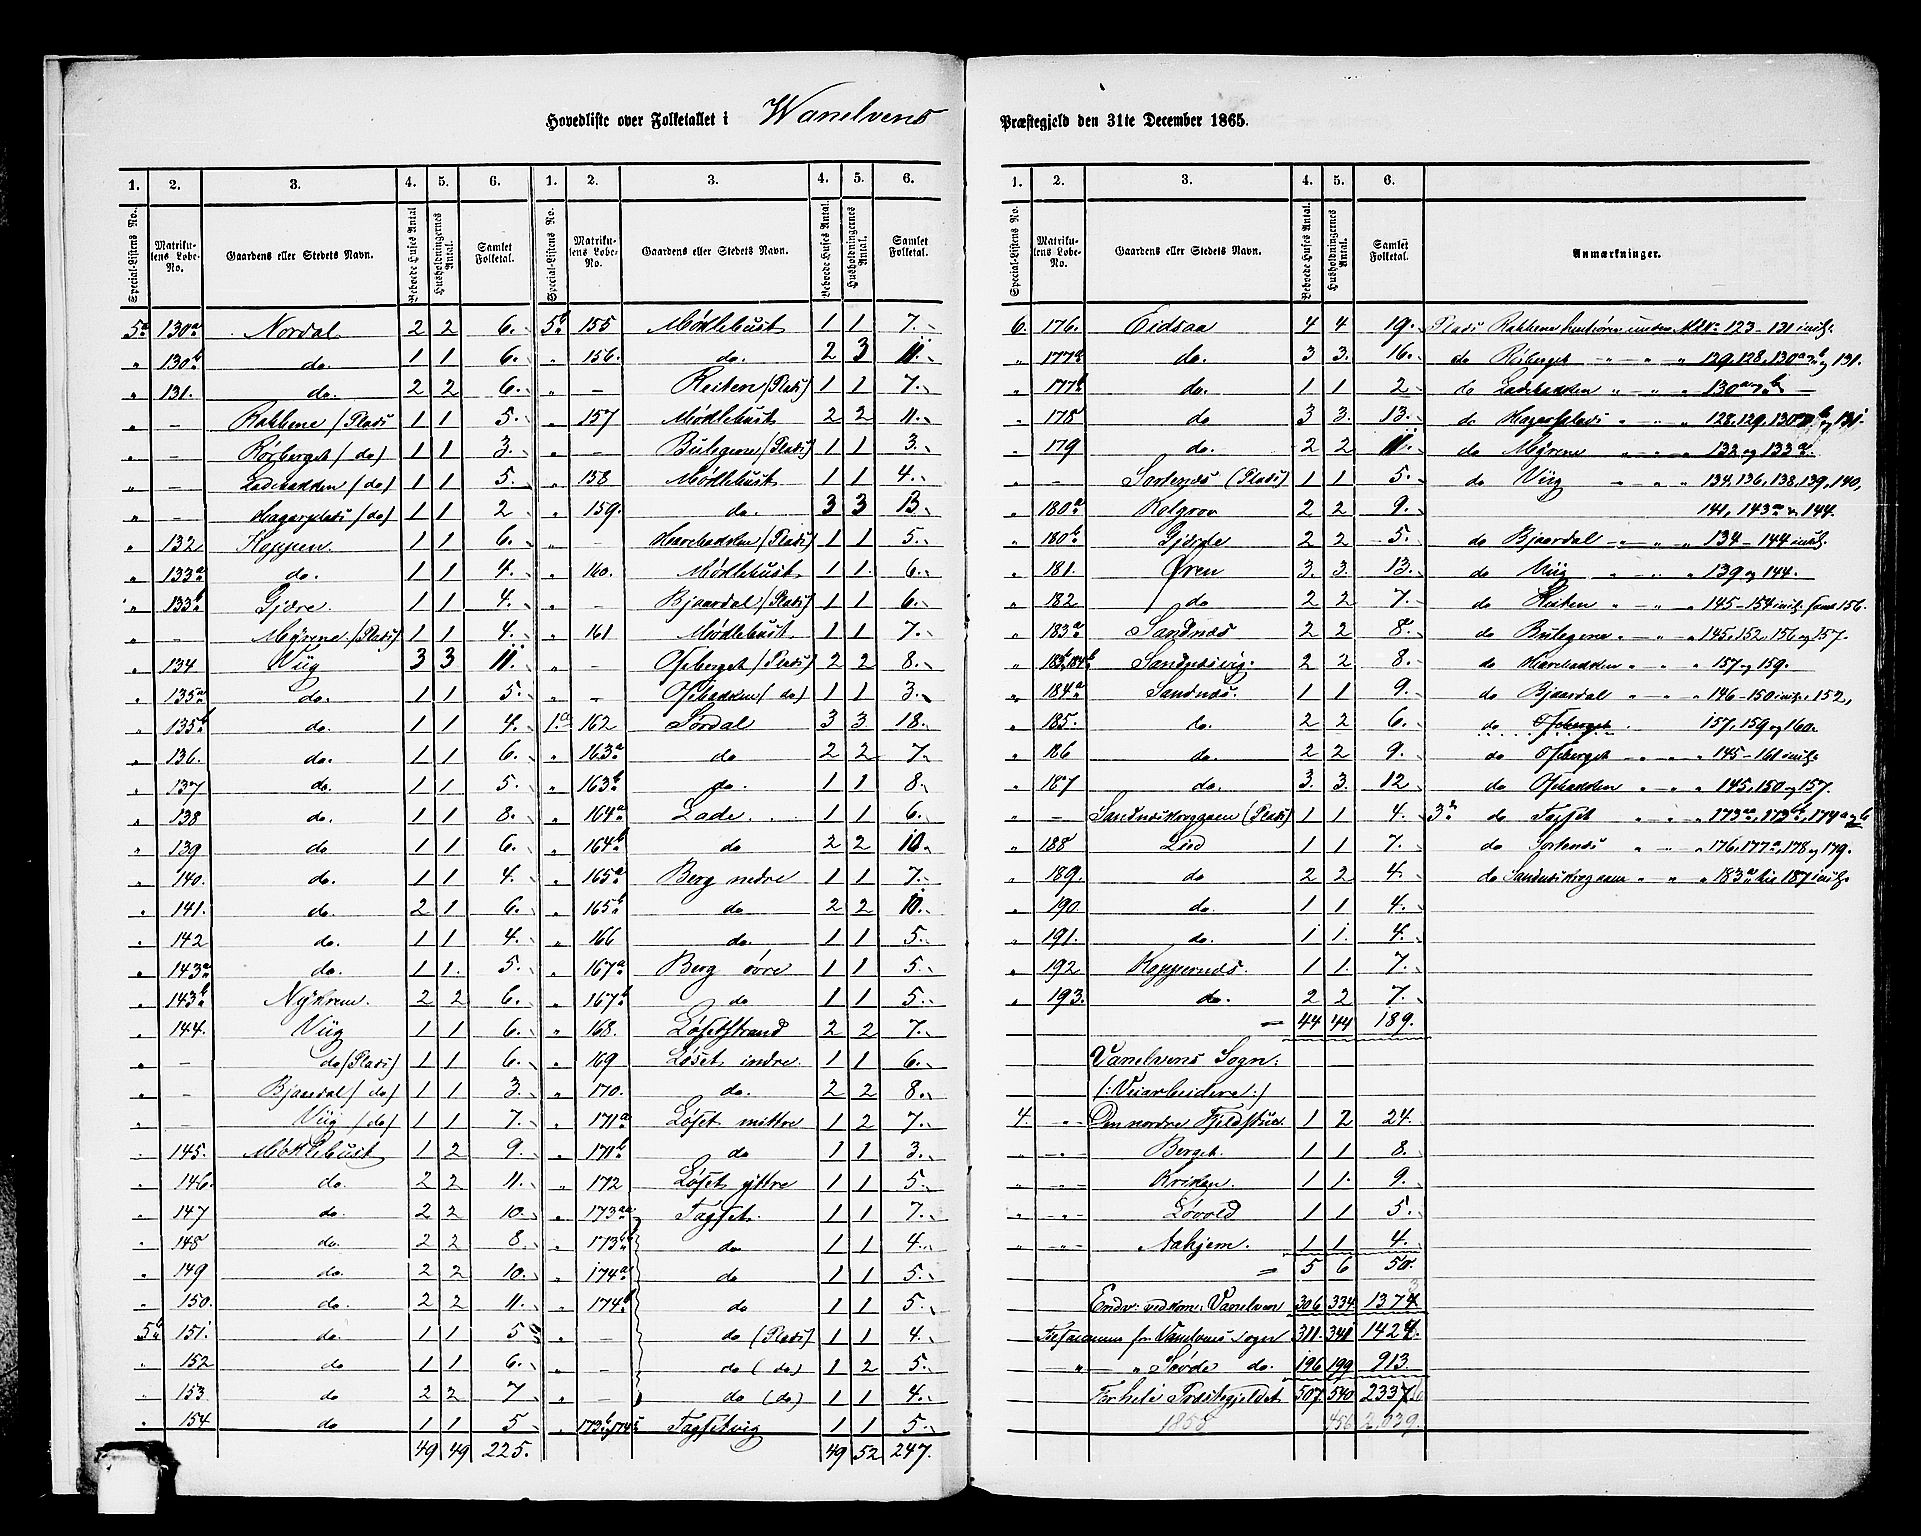 Hovedliste over Folketallet i Wanelvens Præstegjeld den 31te December 1865.
1. 2. 3. 4. 5. 6. 1. 2. 3. 4. 5. 6.
Special-Listens No. Matrikulens Løbe-No. Gaardens eller Stedets Navn. Beboede Huses Antal Husholdningernes Antal. Samlet Folketal. Special-Listens No. Matrikulens Løbe-No. Gaardens eller Stedets Navn. Beboede Huses Antal. Husholdningernes Antal. Samlet Folketal.
5a 130a Nordal 2 2 6. 5b 155 Møklebust 1 1 7.
" 130b do. 1 1 6. " 156. do. 2 3 11.
" 131. do. 2 2 6. " - Reiten (Plads) 1 1 7.
" - Rakkene (Plads 1 1 5. " 157 Møklebust 2 2 11.
" - Rørberget (do) 1 1 3. " - Bulegene (Plads) 1 1 3.
" - Ladebakken (do) 1 1 5. " 158 Møklebust 1 1 4.
" - Hagarplads (do) 1 1 2 " 159. do. 3 3 13
" 132 Koppen. 1 1 6. " - Havebakken (Plads) 1 1 5.
" 133a do. 1 1 4. " 160. Møklebust 1 1. 6.
" 133b Gjære. 1 1 4. " - Bjaardal (Plads) 1 1 6.
" - Myrene (Plads) 1 1 4. " 161 Møklebust. 1 1 7.
" 134 Viig 3 3 11. " - Ofseberget (Plads) 2 2 8.
" 135a do. 1 1 5. " - Ofsebakken (do) 1 1 3.
" 135b do. 1 1 4. 1.a 162 Sordal 3 3 18.
" 136. do. 1 1 6. " 163a do 2 2 7
" 137 do. 1 1 5. " 163b do. 1 1 8.
" 138 do. 1 1 8. " 164a Lade. 1 1 6.
" 139 do 1 1 6. " 164b do 2 2 10.
" 140. do. 1 1 4. " 165a Berg nedre 1 1 7.
" 141. do. 2 1 6. " 165b do 2 2 10.
" 142 do. 1 1 4. " 166 do. 1 1 5.
" 143a do. 1 1. 5. " 167a Berg øvre 1 1 5.
" 143b Nykrem. 2 2 6. " 167b do 1 1 5.
" 144. Viig 1 1 6. " 168. Løsetstrand 2 2 7.
" - do (Plads) 1 1 6. " 169 Løset indre. 1 1 6.
" - Bjaardal (do) 1 1 3. " 170. do. 2 2 8.
" - Viig (do) 1 1 7. " 171a Løset mittre 1 2 7.
" 145. Møklebust 1 2 9. " 171b do 1 1 3.
" 146. do. 2 2 11. " 172 Løset yttre 1 1 5.
" 147 do. 2 2 10. " 173aa Tagset. 1 1 7.
" 148 do. 2 2 8. " 173 do 1 1 4.
" 149 do. 2 2 10. " 174a do 1 1 5.
" 150. do. 2 2 11. " 174b do 1 1 5.
5b 151. do. 1 1 5 " - do (Plads) 1 1 4.
" 152 do 1 1 6. " - do (do) 1 2 5.
" 153 do 2 2 7 " - do (do) 1 1 4.
" 154 do 1 1 5 " Tagsetvig 1 1 5.
49 49 225. 49 52 247.
1. 2. 3. 4. 5. 6.
Special-Listens No. Matrikulens Løbe-No. Gaardens eller Stedets Navn. Beboede Huses Antal. Husholdningernes Antal. Samlet Folketal. Anmærkninger.
6. 176. Eidsaa 4 4 19. Plads Rakkene henhører under M.Nr. 123-131 incl.
" 177a do. 3 3. 16. do Rørberget " - " 129, 128, 130a & b og 131.
" 177b do. 1 1 2 do Ladebakken " - " 130a og b
" 178 do 3 3. 13. do Hagarplads " - " 128, 129, 130a & b og 131.
" 179 do. 2 2 11. do Myrene " - " 132 og 133a.
" - Sortenæs (Plads) 1 1 5. do Viig " - " 134, 136, 138, 139, 140,
" 180a Kolgrov 2 2 9. 141, 143a & 144.
" 180b Gjerde 2 2 5. do Bjaardal " - " 134-144 incl.
" 181. Øren 3. 3. 13. do Viig " - " 139 og 144.
" 182 do 2 2 7. do Reiten " - " 145-154 incl. samt 156.
" 183a Sandnæs 2 2 8. do Bulegene " - " 145, 152, 156 og 157.
" 183b, 184b Sandnæsvig. 2 2 8. do Havebakken " " 157 og 159.
" 184a Sandnæs. 1 1 9. do Bjaardal " " 146-150 incl., 152,
" 185. do. 2 2 6. do Ofseberget 157, 159 og 160.
" 186 do. 2 2 9. do Ofseberget " - " 145-161 incl.
" 187 do. 3. 3. 12 do Ofsebakken " - " 145, 150 og 157.
" - Sandnæskroggaen (Plads) 1 1 4. 3b do Tagset " " 173aa, 173b, 174a og b
" 188 Lied 1 1 7. do Sortenæs " - " 176, 177a, 178 og 179.
" 189. do 2 2 4. do Sandnæskroggaen " " 183a til 187 incl.
" 190 do. 1 1 4.
" 191. do. 1 1. 4.
" 192 Koppernæs. 1 1. 7.
" 193. do. 2 2 7.
= 44 44 189.
Vanelvens Sogn:
(: Veiarbeidere :)
4. " Den nordre Fjeldstue. 1 2 24.
" " Berget. 1 1 8.
" " Kriken. 1 1. 9.
" " Løvold 1 1 5.
" " Aahjem. 1 1 4.
= 5 6 50.
Endv. vedkom. Vanelven 306 334 1374
Tilsammen for Vanelvens Sogn 311. 341 1424.
" " Søvde do. 196 199 913.
For hele Præstegjeldet 507. 540 2337.
1855 456 2,039.